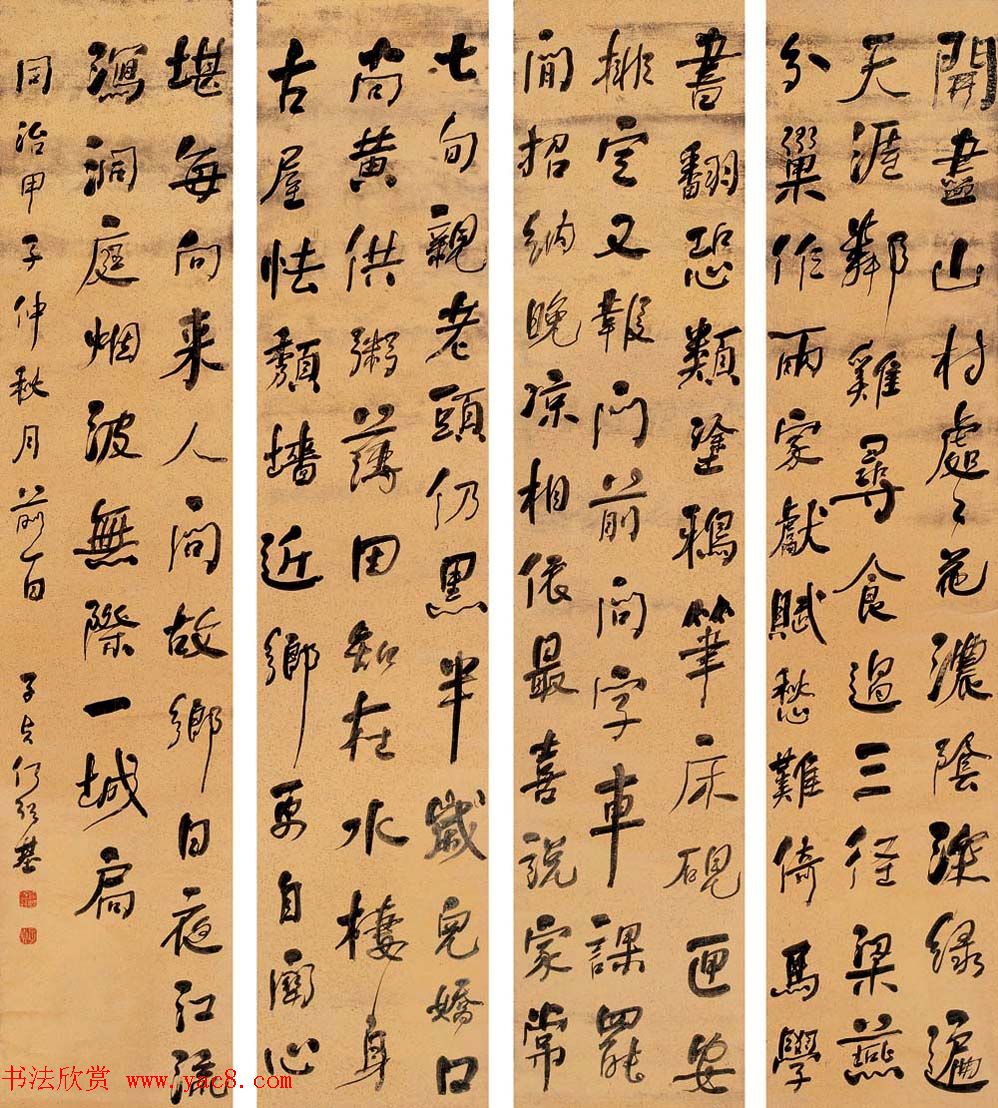 開盡山村處々花濃陰深綠遍
天涯鄰雞尋食過三徑梁燕
分巢作兩家獻賦愁難倚馬學
書翻恐類塗鴉筆床硯匣安
排定又報門前問字車課罷
閒招納晚涼相依最喜說家常
七旬親老頭仍黑半歲兒嬌口
尚黃供粥薄田知在水棲身
古屋怯頹墻近鄉更自關心
堪每向來人問故鄉日夜江流
瀉洞庭烟波無際一城扃
同治甲子仲秋月前百
子貞何紹基
书法欣赏 www.yac8.com